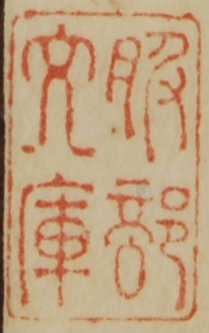 服部
文庫